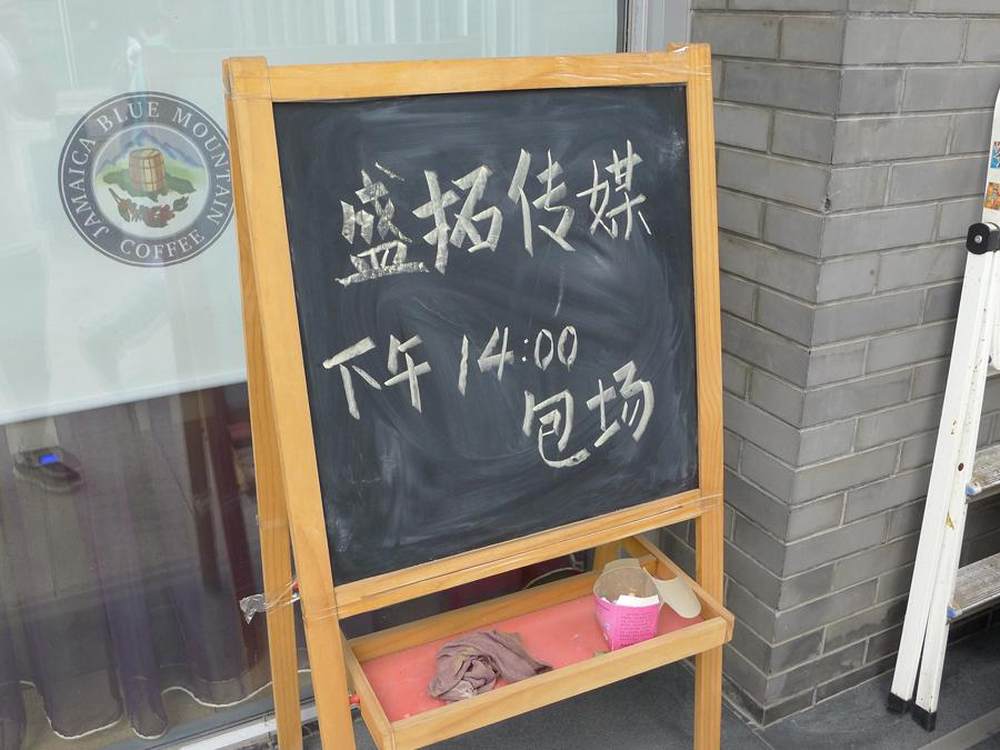 JAMAICA BLUE MOUNTAIN
COFFEE
盛拓传媒
下午 14:00
包场